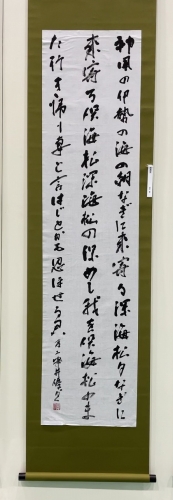 神風の伊勢の海の朝なぎに来寄る深海松夕なぎに
来寄る俣海松深海松の深めし我を俣海松のま
た行き帰り妻と言はじとかも思ほせる君